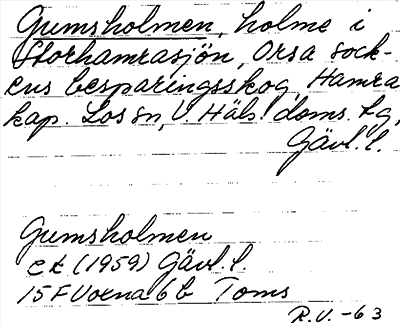 Gumsholmen, holme i
Storhamrasjön, Orsa sock-
ens besparingsskog, Hamra
kap. Los sn, V. Häls. doms. tg,
Gävl. l.
Gumsholmen
ek. (1959) Gävl. l.
15F Voxna 6b Toms
R.V. -63